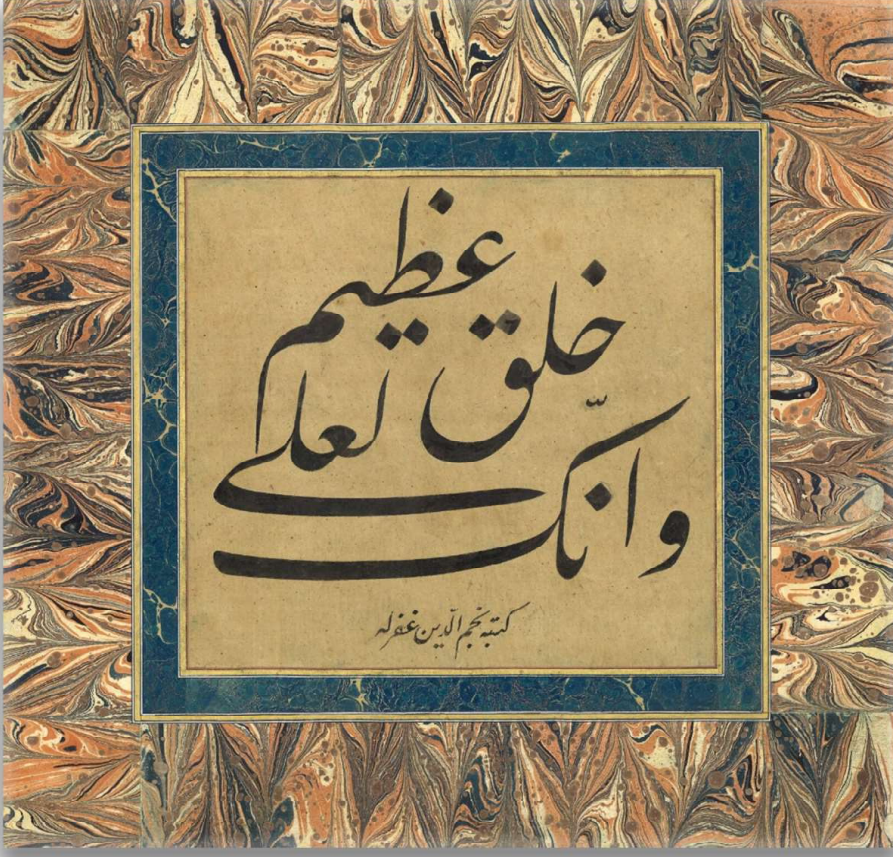 وانّك لعلى
خلق عظيم
كتبه نجم الدّين غفر له